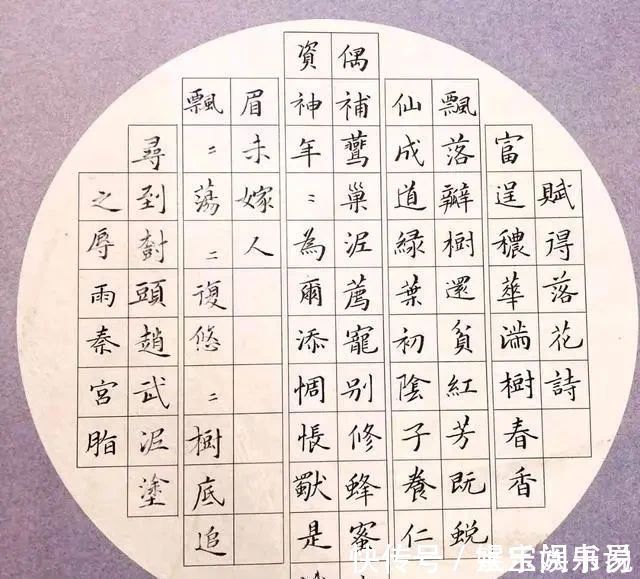 賦得落花詩
富逞穠華滿樹春香
飄落瓣樹還貧紅芳既蛻
仙成道綠葉初陰子養仁
偶補鷰巢泥薦寵别修蜂蜜
資神年〻為爾添惆悵獨是
眉未嫁人
飄〻蕩〻復悠〻樹底追
尋到樹頭趙武泥塗
之辱雨秦宮脂
快传号 /